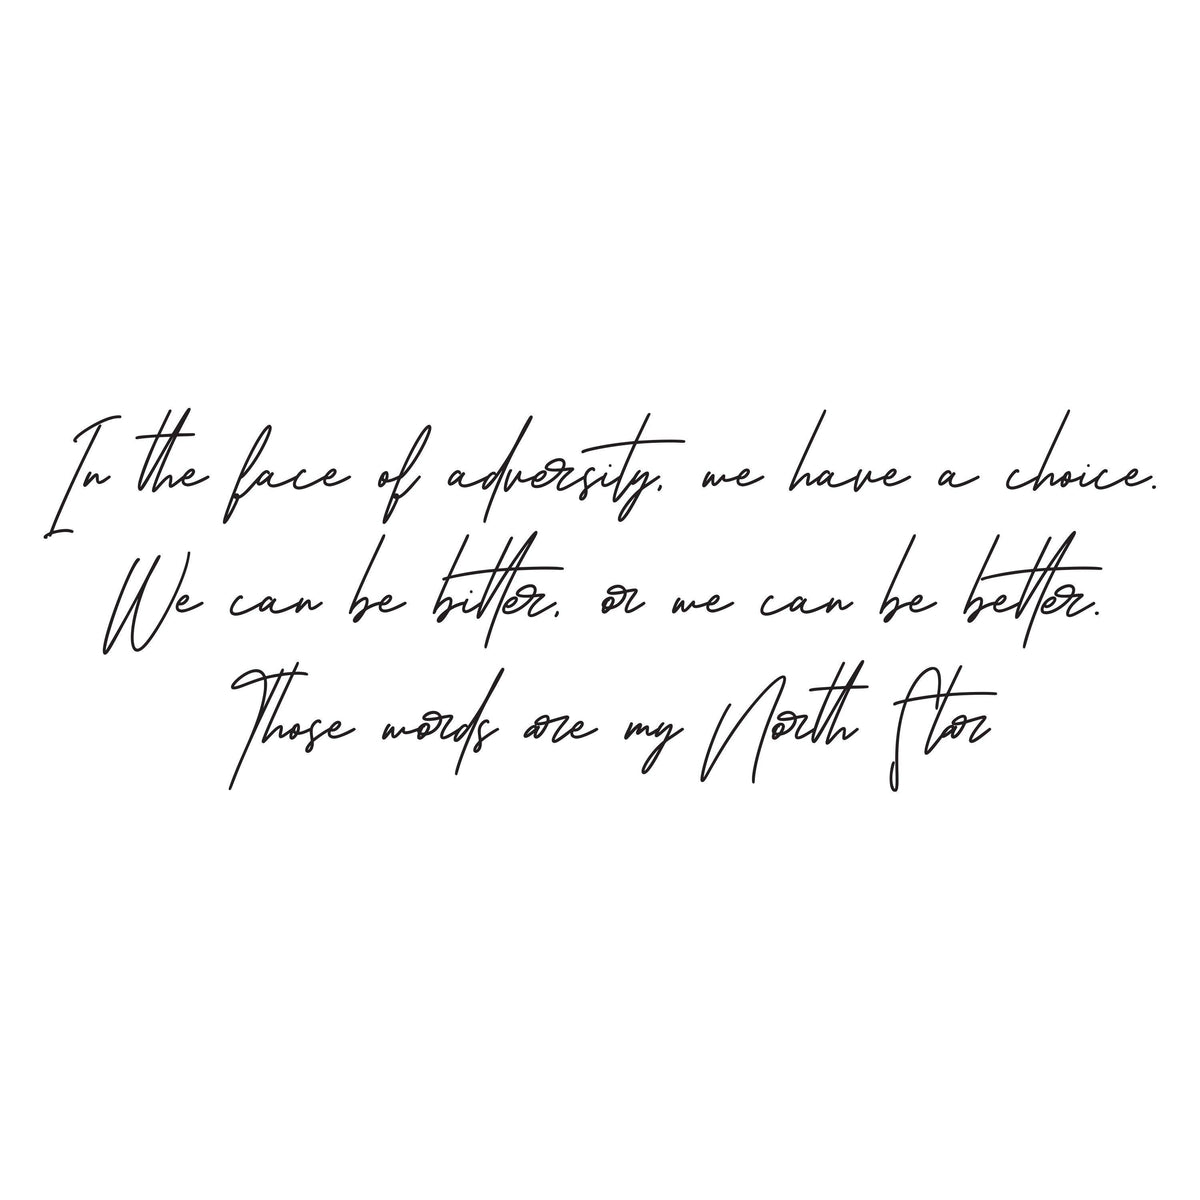 In the face of adversity, we have a choice.
We can be bitter, or we can be better.
Those words are my North Star